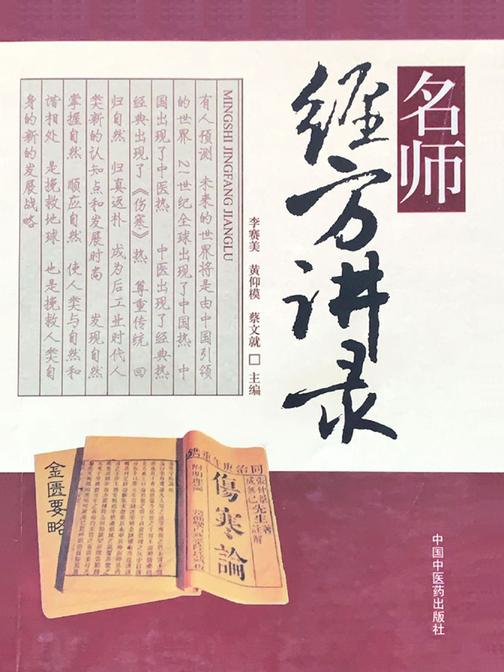 名师
经方讲录
MINGSHI JINGFANG JIANGLU
有人预测 未来的世界将是由中国引领
的世界 21世纪全球出现了中国热 中
国出现了中医热 中医出现了经典热
经典出现了《伤寒》热 尊重传统 回
归自然 归真返朴 成为后工业时代人
类新的认知点和发展时尚 发现自然
掌握自然 顺应自然 使人类与自然和
谐相处 是挽救地球 也是挽救人类自
身的新的发展战略
李赛美 黄仰模 蔡文就 □ 主编
張仲景先生著
成無己註解
傷寒論
附明理論
金匱要略
中国中医药出版社